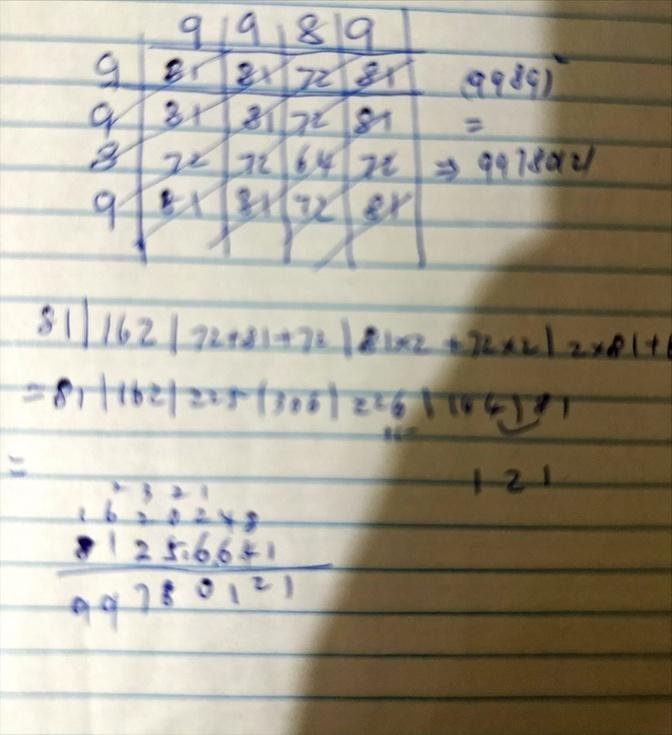 9 9 8 9
9 | 81 | 81 | 72 | 81 (9989)²
9 | 81 | 81 | 72 | 81 =
8 | 72 | 72 | 64 | 72 ⇒
9 | 81 | 81 | 72 | 81
81 | 162 | 72+81+72 | 81×2 +72×2 | 2×81+6
= 81 | 162 | 225 | 306 | 226 | 144 | 81
=
1 2 1
2 3 2 1
1 6 2 0 2 4 8
8 1 2 5 6 6 4 1
9 9 7 8 0 1 2 1